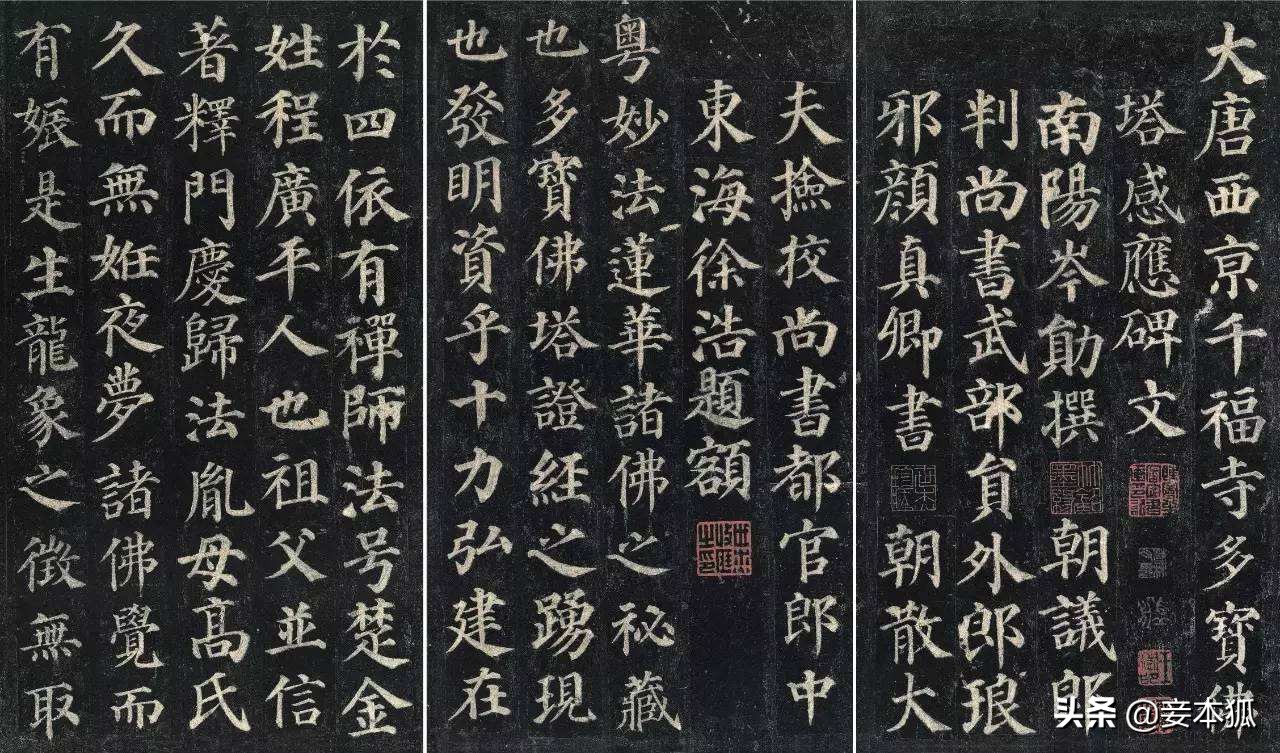 大唐西京千福寺多寶佛
塔感應碑文
南陽岑勛撰 朝議郎
判尚書武部貟外郎琅
邪顔真卿書 朝散大
夫撿挍尚書都官郎中
東海徐浩題額
粵妙法蓮華諸佛之祕藏
也多寶佛塔證經之踴現
也發明資乎十力弘建在
於四依有禪師法号楚金
姓程廣平人也祖父並信
著釋門慶歸法胤母髙氏
久而無姙夜夢諸佛覺而
有娠是生龍象之徵無取
头条 @妾本狐